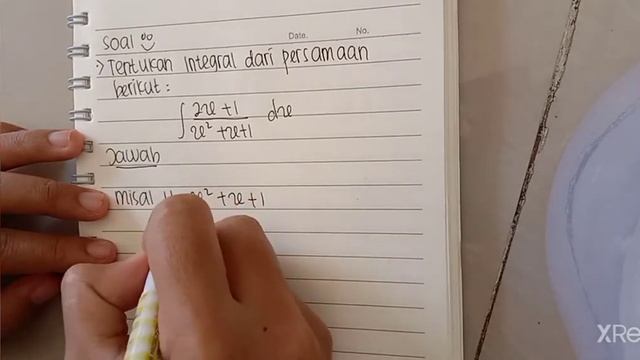 soal
Date. No.
> Tentukan Integral dari persamaan
berikut :
∫ (2x + 1)/(x² + x + 1) dx
Jawab
misal U = x² + x + 1
XRe